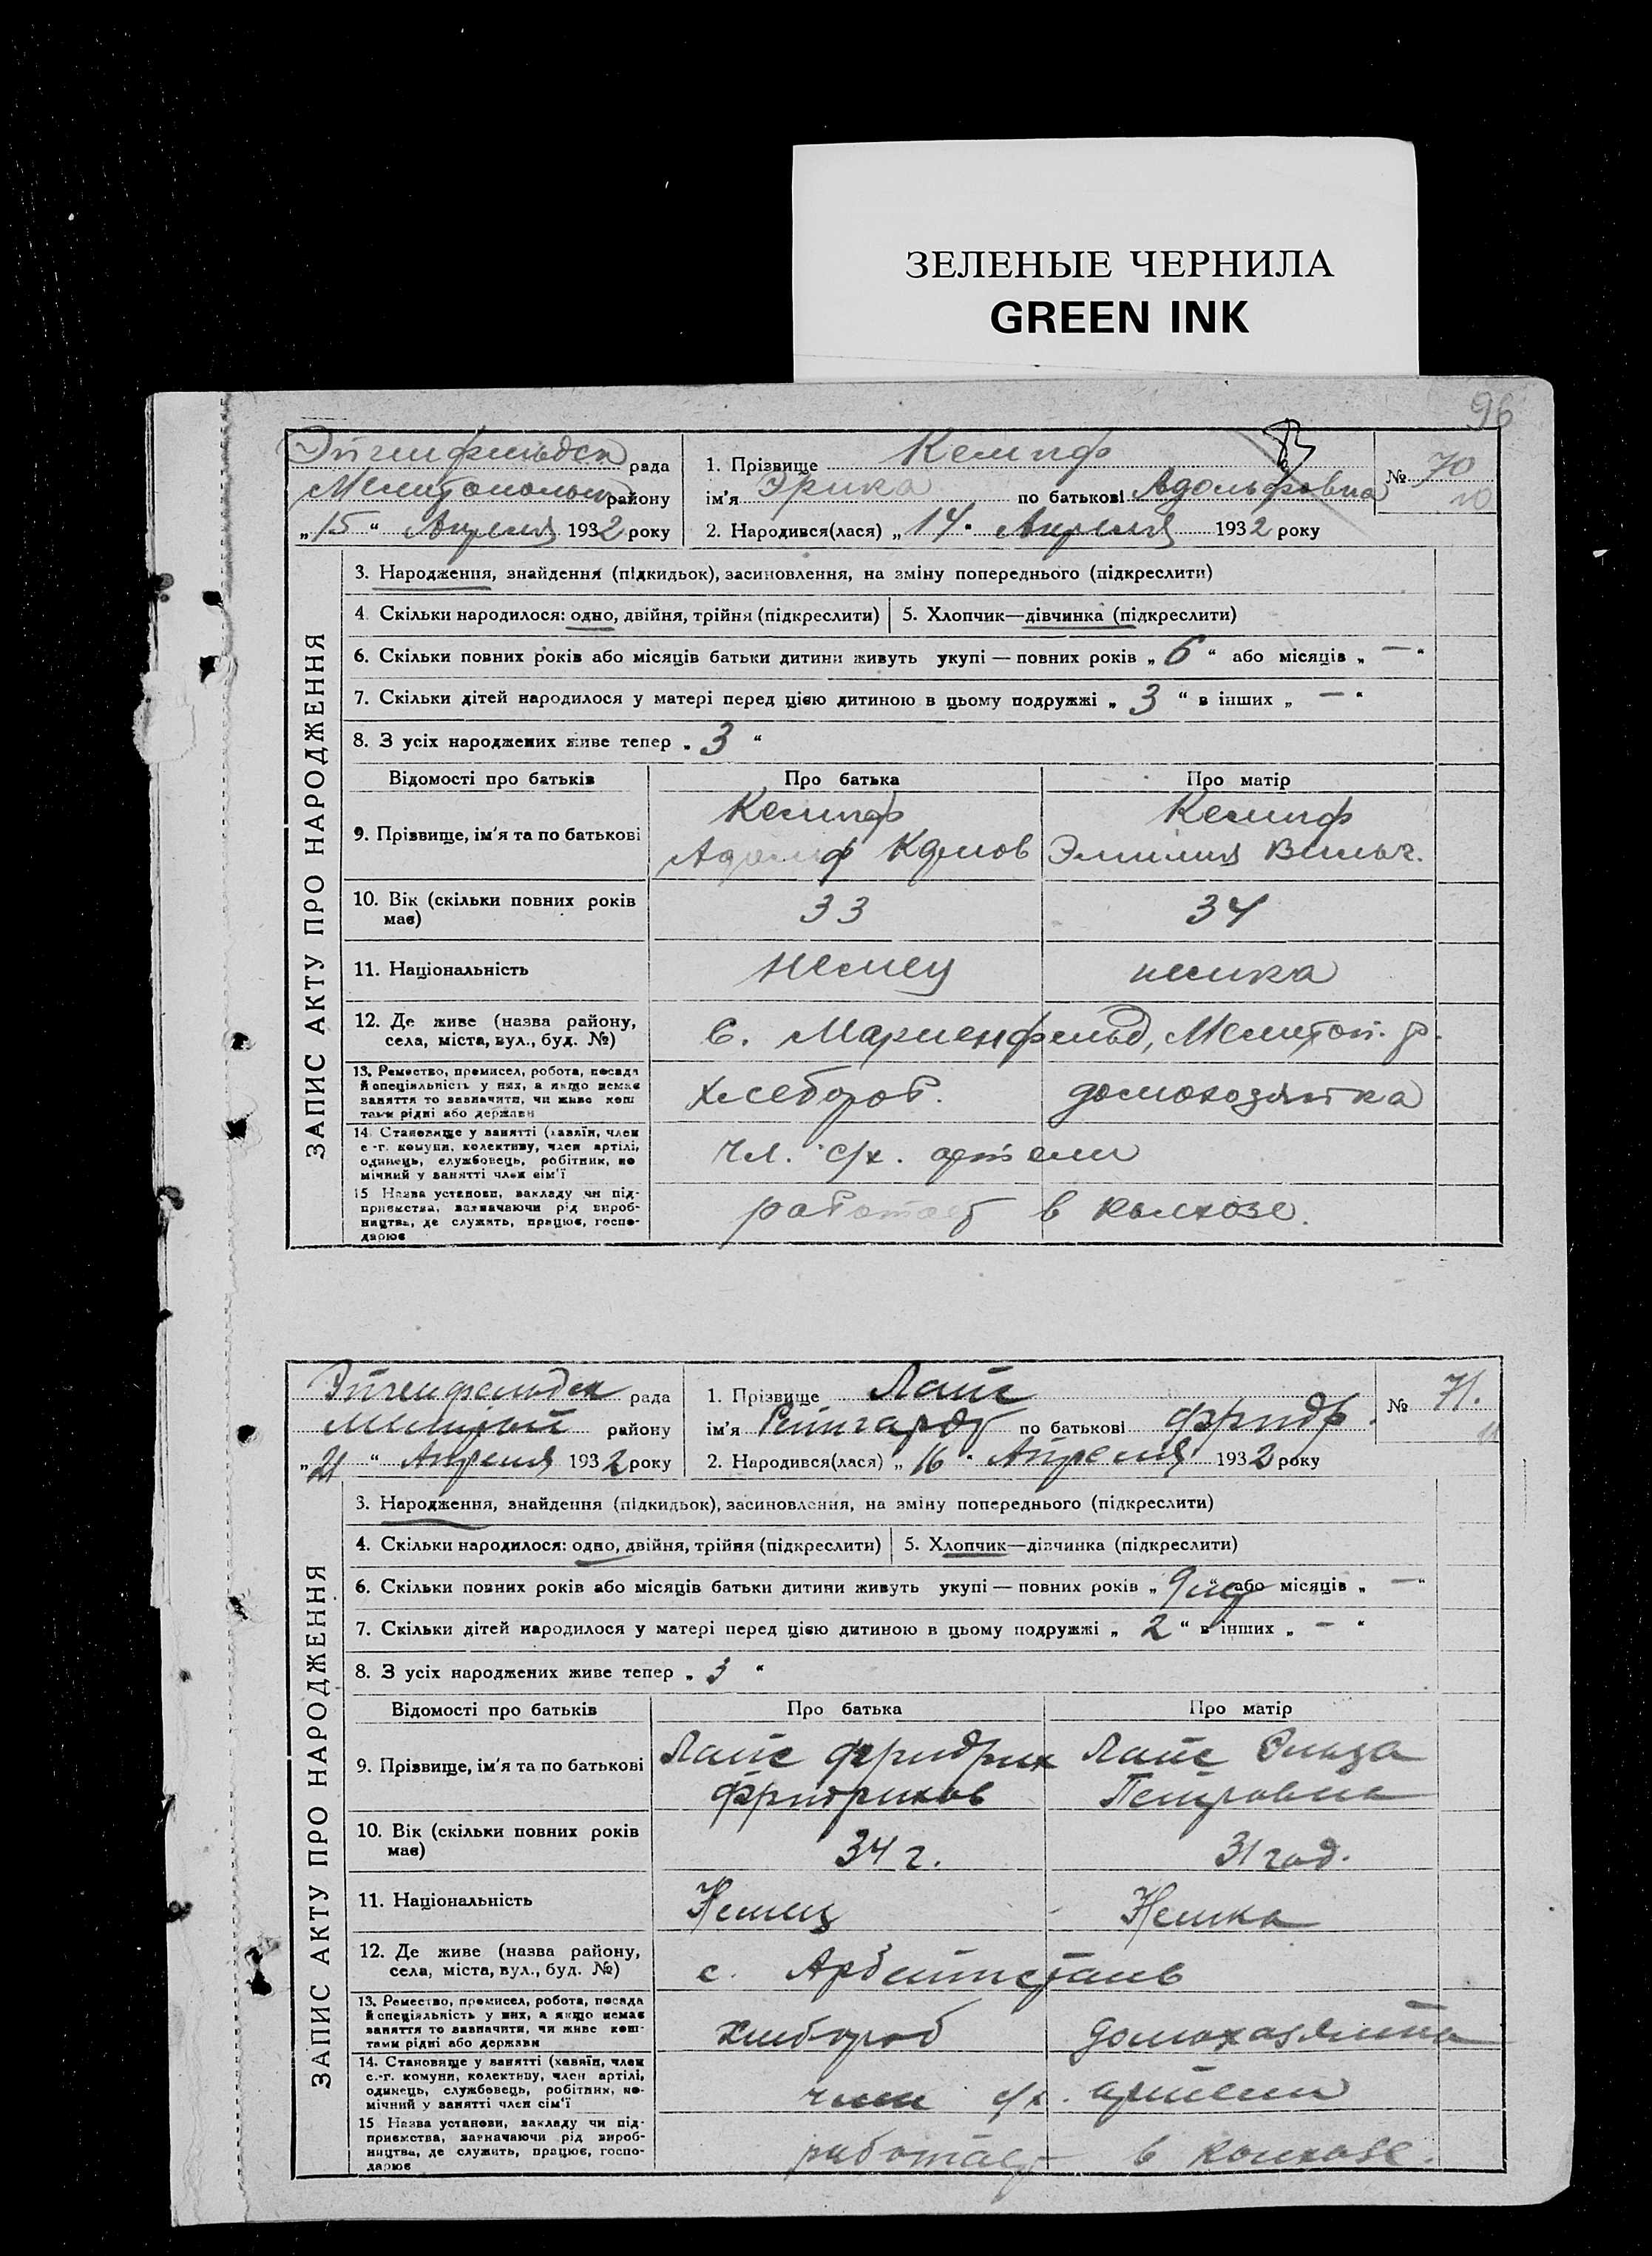 ЗЕЛЕНЫЕ ЧЕРНИЛА
GREEN INK
96
Эйгенфельдск рада
Мелитопольск району
„15“ Апреля 1932 року
1. Прізвище Кемпф
ім'я Эрика по батькові Адольфовна
2. Народився(лася) „14“ Апреля 1932 року
№ 70
10
ЗАПИС АКТУ ПРО НАРОДЖЕННЯ
3. Народження, знайдення (підкидьок), засиновлення, на зміну попереднього (підкреслити)
4. Скільки народилося: одно, двійня, трійня (підкреслити) 5. Хлопчик—дівчинка (підкреслити)
6. Скільки повних років або місяців батьки дитини живуть укупі — повних років „6“ або місяців „—“
7. Скільки дітей народилося у матері перед цією дитиною в цьому подружжі „3“ в інших „—“
8. З усіх народжених живе тепер „3“
Відомості про батьків Про батька Про матір
9. Прізвище, ім'я та по батькові
Кемпф Кемпф
Адольф Эмилия Вильг.
10. Вік (скільки повних років має) 33 34
11. Національність немец немка
12. Де живе (назва району, села, міста, вул., буд. №) с. Мариенфельд, Мелитоп. р.
13. Ремество, промисел, робота, посада
й спеціяльність у них, а якщо немає
заняття то зазначити, чи живе кош
тами рідні або держави
хлебороб. домохозяйка
14. Становище у занятті (хазяїн, член
с.-г. комуни, колективу, член артілі,
одинець, службовець, робітник, по
мічний у занятті член сім'ї
чл. с/х. артели
15 Назва установи, закладу чи під-
приємства, зазначаючи рід вироб-
ництва, де служить, працює, госпо-
дарює
работает в колхозе.
Эйгенфельдск рада
Мелитоп району
„21“ Апреля 1932 року
1. Прізвище Лайс
ім'я Рейнгардт по батькові Фридр.
2. Народився(лася) „16“ Апреля 1932 року
№ 71.
11
ЗАПИС АКТУ ПРО НАРОДЖЕННЯ
3. Народження, знайдення (підкидьок), засиновлення, на зміну попереднього (підкреслити)
4. Скільки народилося: одно, двійня, трійня (підкреслити) 5. Хлопчик—дівчинка (підкреслити)
6. Скільки повних років або місяців батьки дитини живуть укупі — повних років „9 або місяців „—“
7. Скільки дітей народилося у матері перед цією дитиною в цьому подружжі „2“ в інших „—“
8. З усіх народжених живе тепер „3“
Відомості про батьків Про батька Про матір
9. Прізвище, ім'я та по батькові
Лайс Фридрих Лайс
Фридрихов Петровна
10. Вік (скільки повних років має) 34 г. 31 год.
11. Національність Немец Немка
12. Де живе (назва району, села, міста, вул., буд. №) с.
13. Ремество, промисел, робота, посада
й спеціяльність у них, а якщо немає
заняття то зазначити, чи живе кош-
тами рідні або держави
хлебороб домохозяйка
14. Становище у занятті (хазяїн, член
с.-г. комуни, колективу, член артілі,
одинець, службовець, робітник, по-
мічний у занятті член сім'ї
член с/х. артели
15 Назва установи, закладу чи під-
приємства, зазначаючи рід вироб-
ництва, де служить, працює, госпо-
дарює
работает в колхозе.